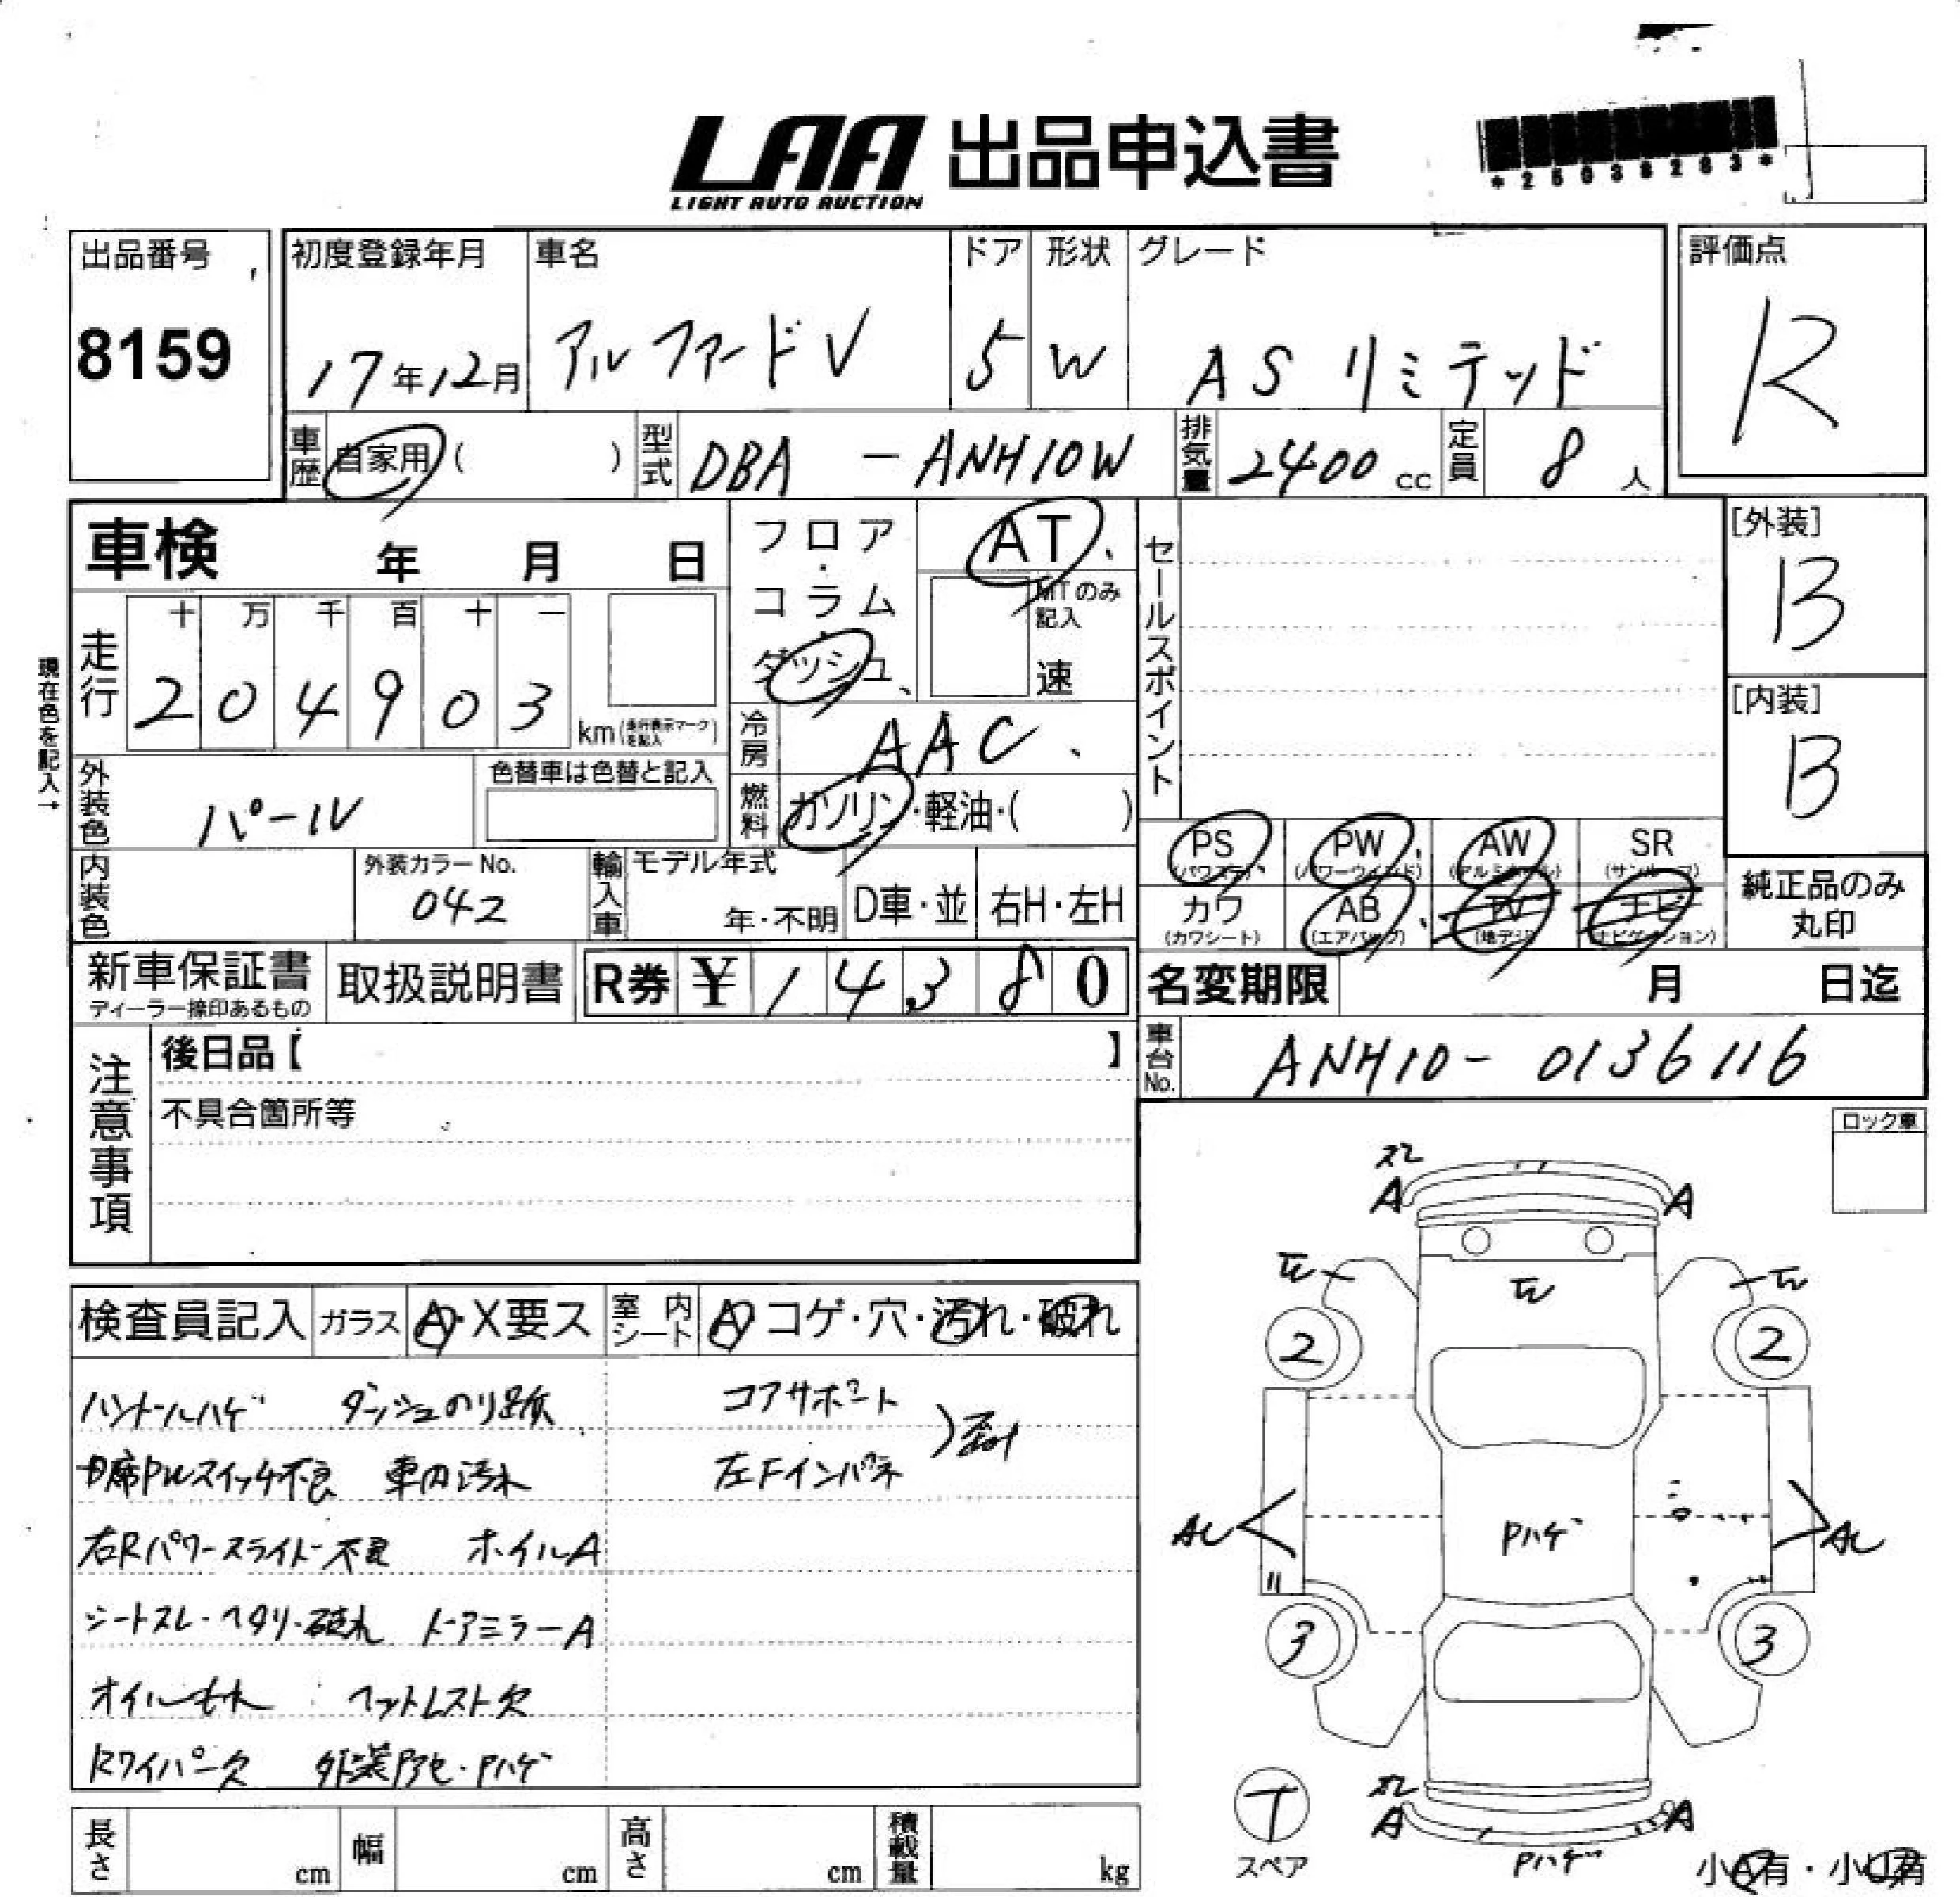 LAA 出品申込書
LIGHT AUTO AUCTION
*25038263*
出品番号
8159
初度登録年月 車名 ドア 形状 グレード
17年12月 アルファードV 5 W ASリミテッド
評価点
R
車歴 自家用( ) 型式 DBA - ANH10W 排気量 2400cc 定員 8人
車検 年 月 日
フロア・コラム・ダッシュ
AT
MTのみ記入
速
セールスポイント
[外装]
B
[内装]
B
現在色を記入→
走行 十 万 千 百 十 一
204903 km(走行表示マークを記入)
冷房 AAC
外装色 パール 色替車は色替と記入
燃料 ガソリン・軽油・( )
内装色 外装カラーNo. 042
輸入車 モデル年式 年・不明 D車・並 右H・左H
PS (パワステ) PW (パワーウインド) AW (アルミホイール) SR (サンルーフ)
カワ (カワシート) AB (エアバック) TV (地デジ) ナビ (ナビゲーション)
純正品のみ丸印
新車保証書 ディーラー捺印あるもの 取扱説明書 R券 ¥14380
名変期限 月 日迄
車台No. ANH10-0136116
注意事項
後日品【 】
不具合箇所等
ロック車
検査員記入 ガラス A・X要ス 室内シート A コゲ・穴・汚れ・破れ
ハンドルハゲ ダッシュのり跡 コアサポート
D席PWスイッチ不良 車内汚れ 左Fインパネ
右Rパワースライド不良 ホイルA
シートスレ・ヘタリ・破れ ドアミラーA
オイルもれ ヘッドレスト欠
Rワイパー欠 外装色アセ・Pハゲ
スレ
A A
2 2
Pハゲ
3 3
スレ
A A
Pハゲ
T
スペア
小A有・小U有
長さ cm 幅 cm 高さ cm 積載量 kg